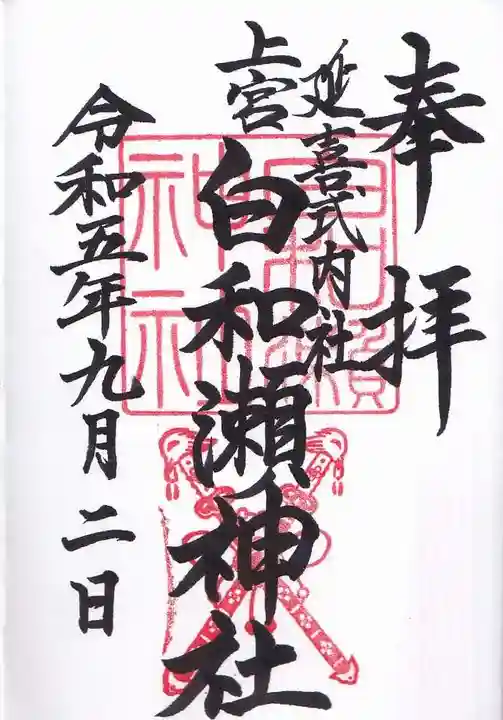 奉拝
延喜式内社
上宮
白和瀬神社
令和五年九月二日